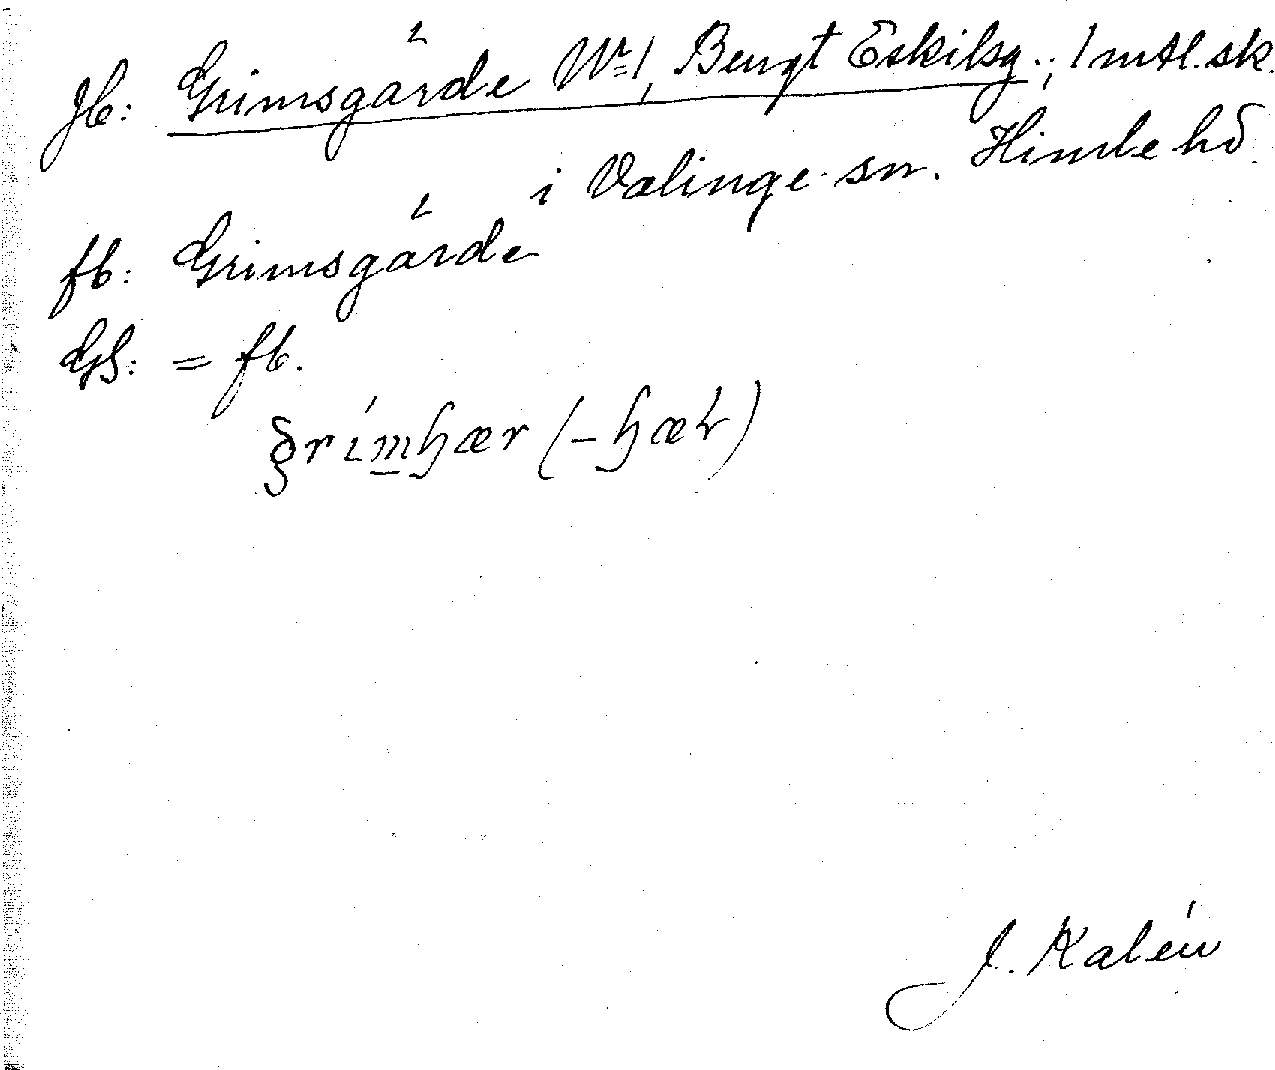 Jb: Grimsgärde No 1, Bengt Eskilsg.; 1 mtl. sk.
i Valinge sn. Himle hd
fb: Grimsgärde
GS: = fb.
J. Kalén